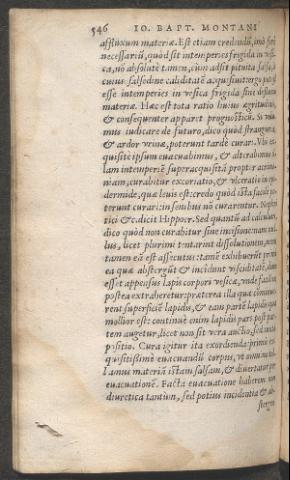 546 IO. BAPT. MONTANI
affluxum materiæ. Est etiam credendũ, imò
necessariũ, quòd sit intemperies frigida in vesi
ca, nõ absolutè tamen, cùm adsit pituita salsa,
cuius salsedine caliditatẽ acquisiuit: ergo potest
esse intemperies in vesica frigida sine affluxu
materiæ. Hæc est tota ratio huius ægritudinis,
& consequenter apparet prognosticũ. Si volu
mus iudicare de futuro, dico quòd stranguria,
& ardor vrinæ, poterunt tardè curari. Vbi ex
quisitè ipsum euacuabimus, & alterabimus
lam intemperiẽ superacquisitã propter acrimo
niam, curabitur excoriatio, & vlceratio in epi
dermide, quæ leuis est: credo quòd ista facilè po
terunt curari: in senibus nõ curarentur. Nephri
tici &c. dicit Hippocr. Sed quantũ ad calculum,
dico quòd non curabitur sine incisione: nam nul
lus, licet plurimi tentarint dissolutionem,
tamen eã est assecutus: tamẽ exhibuerũt
ea quæ abstergũt & incidunt visciditatẽ,
esset appensus lapis corpori vesicæ, vnde facilius
postea extraheretur: præterea illa quæ
rent superficiẽ lapidis, & eam partẽ lapidis quæ
mollior est: continuè enim lapidis pars post par
tem augetur, licet non sit vera auctio, sed
positio. Cura igitur ita exordienda: primò ex
quisitissimè euacuandũ corpus, vt omnino
lamus materiã istam salsam, & diuertatur per
euacuationẽ. Facta euacuatione habemus non
diuretica tantùm, sed potius incidentia & ab-
stergen